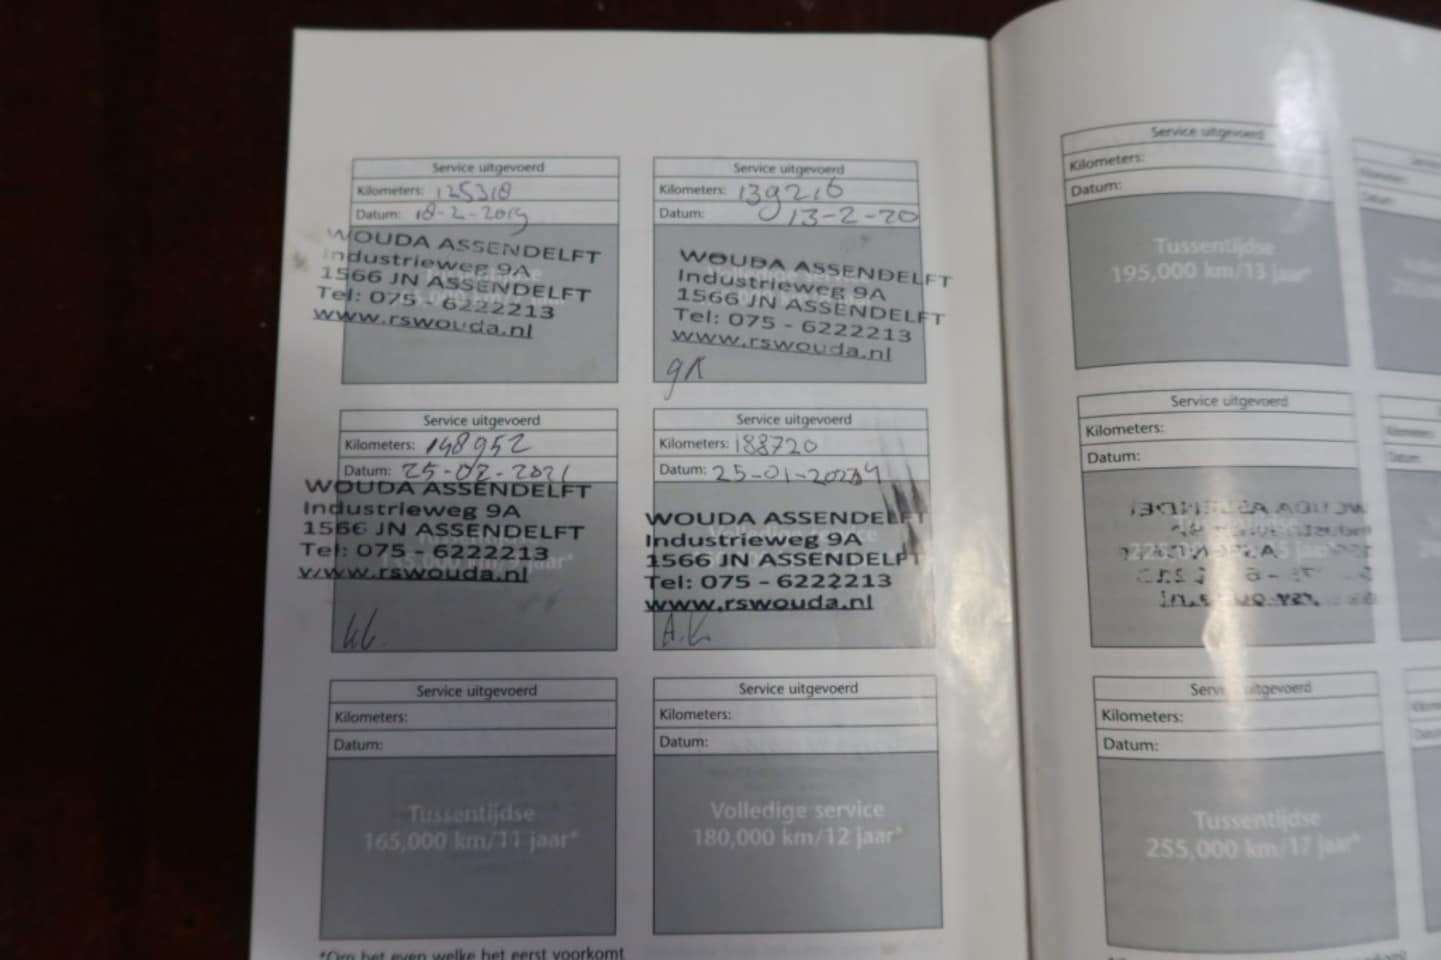 Service uitgevoerd
Kilometers: 125318
Datum: 18-2-2019
WOUDA ASSENDELFT
Industrieweg 9A
1566 JN ASSENDELFT
Tel: 075 - 6222213
www.rswouda.nl
Service uitgevoerd
Kilometers: 139216
Datum: 13-2-20
WOUDA ASSENDELFT
Industrieweg 9A
1566 JN ASSENDELFT
Tel: 075 - 6222213
www.rswouda.nl
Service uitgevoerd
Kilometers: 148952
Datum: 25-02-2021
WOUDA ASSENDELFT
Industrieweg 9A
1566 JN ASSENDELFT
Tel: 075 - 6222213
www.rswouda.nl
Service uitgevoerd
Kilometers: 188720
Datum: 25-01-2024
WOUDA ASSENDELFT
Industrieweg 9A
1566 JN ASSENDELFT
Tel: 075 - 6222213
www.rswouda.nl
A.K
Service uitgevoerd
Kilometers:
Datum:
Tussentijdse
165,000 km/11 jaar*
Service uitgevoerd
Kilometers:
Datum:
Volledige service
180,000 km/12 jaar*
*Om het even welke het eerst voorkomt
Service uitgevoerd
Kilometers:
Datum:
Tussentijdse
195,000 km/13 jaar*
Service uitgevoerd
Kilometers:
Datum:
Service uitgevoerd
Kilometers:
Datum:
Tussentijdse
255,000 km/17 jaar*